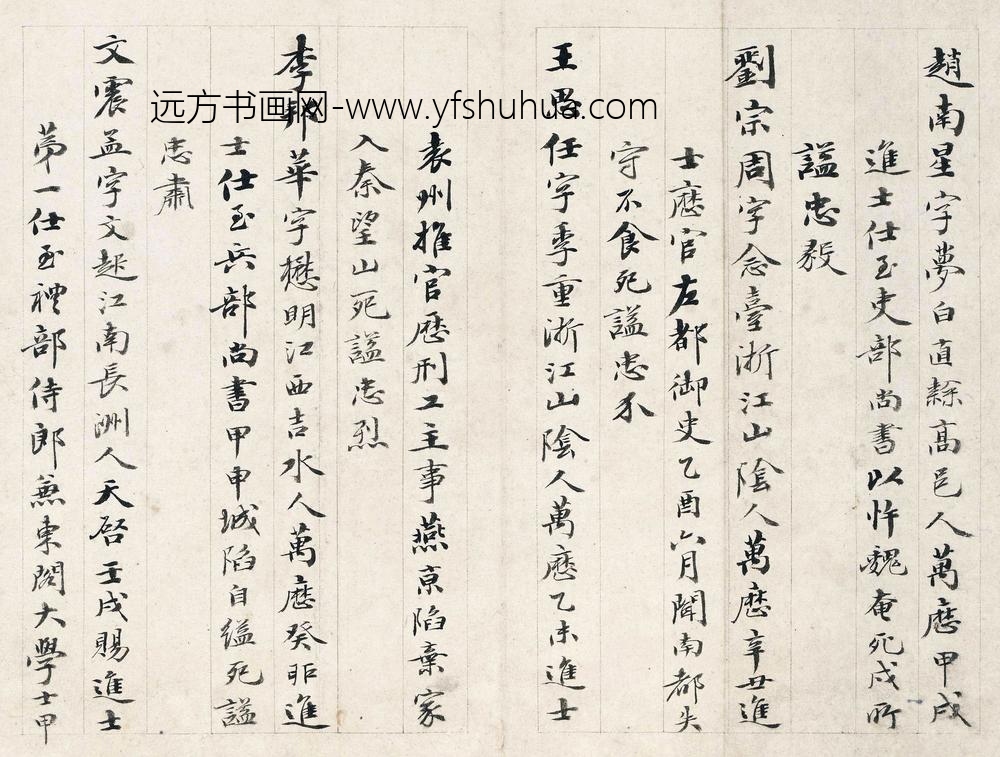 趙南星字夢白直隸高邑人萬曆甲戌
進士仕至吏部尚書以忤魏奄死戍所
謚忠毅
劉宗周字念臺浙江山陰人萬曆辛丑進
士歷官左都御史乙酉六月聞南都失
守不食死謚忠介
王思任字季重浙江山陰人萬曆乙未進士
袁州推官歷刑工主事燕京陷棄家
入秦望山死謚忠烈
李邦華字懋明江西吉水人萬曆癸卯進
士仕至兵部尚書甲申城陷自縊死謚
忠肅
文震孟字文起江南長洲人天啓壬戌賜進士
第一仕至禮部侍郎兼東閣大學士甲
远方书画网-www.yfshuhua.com